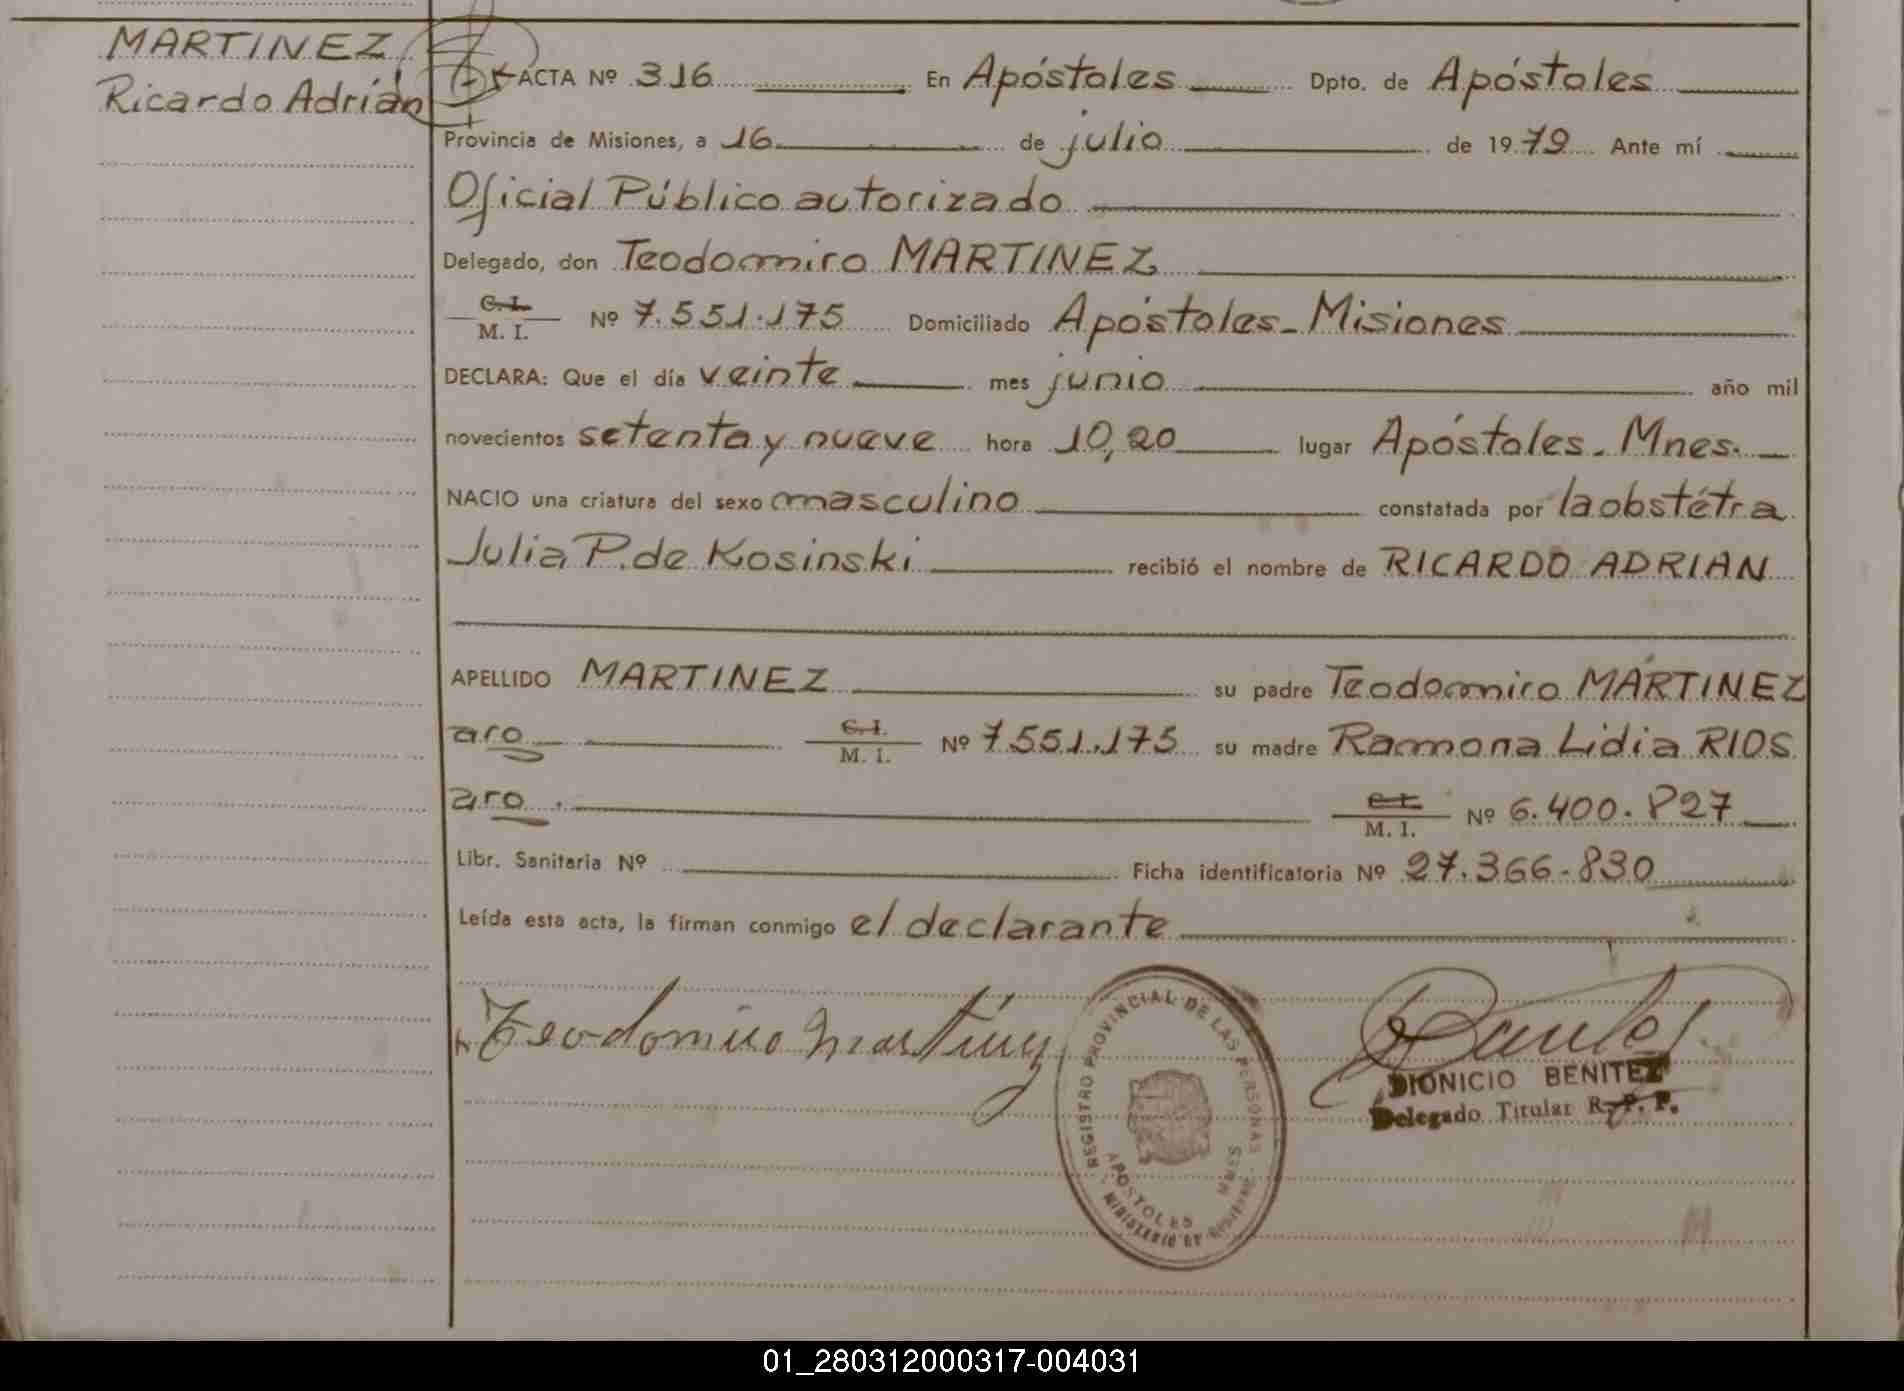 MARTINEZ
Ricardo Adrián
ACTA Nº 316 En Apóstoles Dpto. de Apóstoles
Provincia de Misiones, a 16 de julio de 1979 Ante mí
Oficial Público autorizado
Delegado, don Teodomiro MARTINEZ
C. I.
M. I. Nº 7.551.175 Domiciliado Apóstoles_Misiones
DECLARA: Que el día veinte mes junio año mil
novecientos setenta y nueve hora 10,20 lugar Apóstoles. Mnes.
NACIO una criatura del sexo masculino constatada por la obstétra
Julia P. de Kosinski recibió el nombre de RICARDO ADRIAN
APELLIDO MARTINEZ su padre Teodomiro MARTINEZ
aro C. I.
M. I. Nº 7551.175 su madre Ramona Lidia RIOS
aro. C. I.
M. I. Nº 6.400.827
Libr. Sanitaria Nº Ficha identificatoria Nº 27.366.830
Leída esta acta, la firman conmigo el declarante
Teodomiro Martinez
REGISTRO PROVINCIAL DE LAS PERSONAS
APOSTOLES MNES
MINISTERIO DE GOBIERNO
DIONICIO BENITEZ
Delegado Titular R. P. P.
01_280312000317-004031